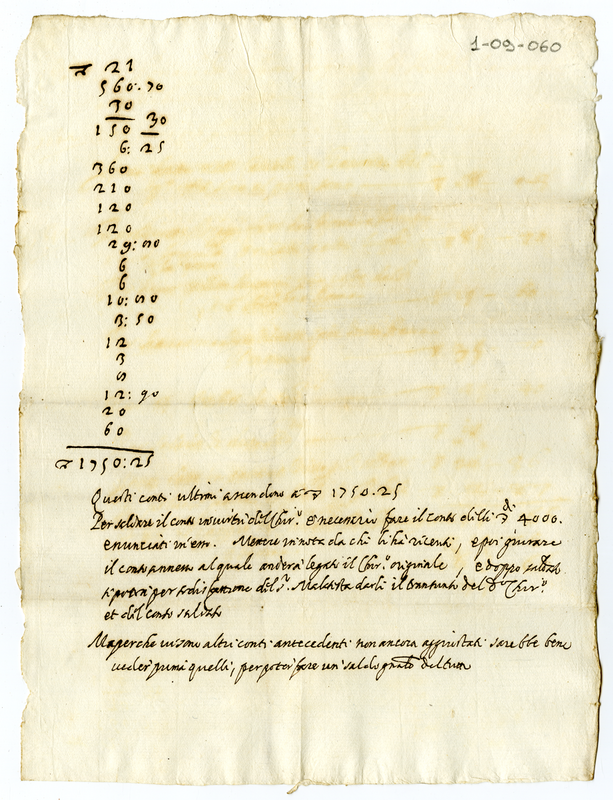 1-09-060
21
560:70
30
150 30
6: 25
360
210
120
120
29: 80
6
6
10: 80
3: 50
12
3
8
12: 90
20
60
1750:25
Questi conti ultimi ascendono a 1750.25
Per saldare il conto in virtù del Chir.º è necessario fare il Conto delli di 4000.
enunciati in esso. Mentre in nota da chi li ha ricevuti, e poi giurare
il conto annesso al quale anderà legato il Chir.º originale, e doppo saldato
si potrà per sodisfattione del Sr. Malatesta darli il transunto del do Chir.º
et del Conto saldato
Ma perche vi sono altri conti antecedenti non ancora aggiustati sarebbe bene
veder prima quelli, per poter fare un saldo del tutto